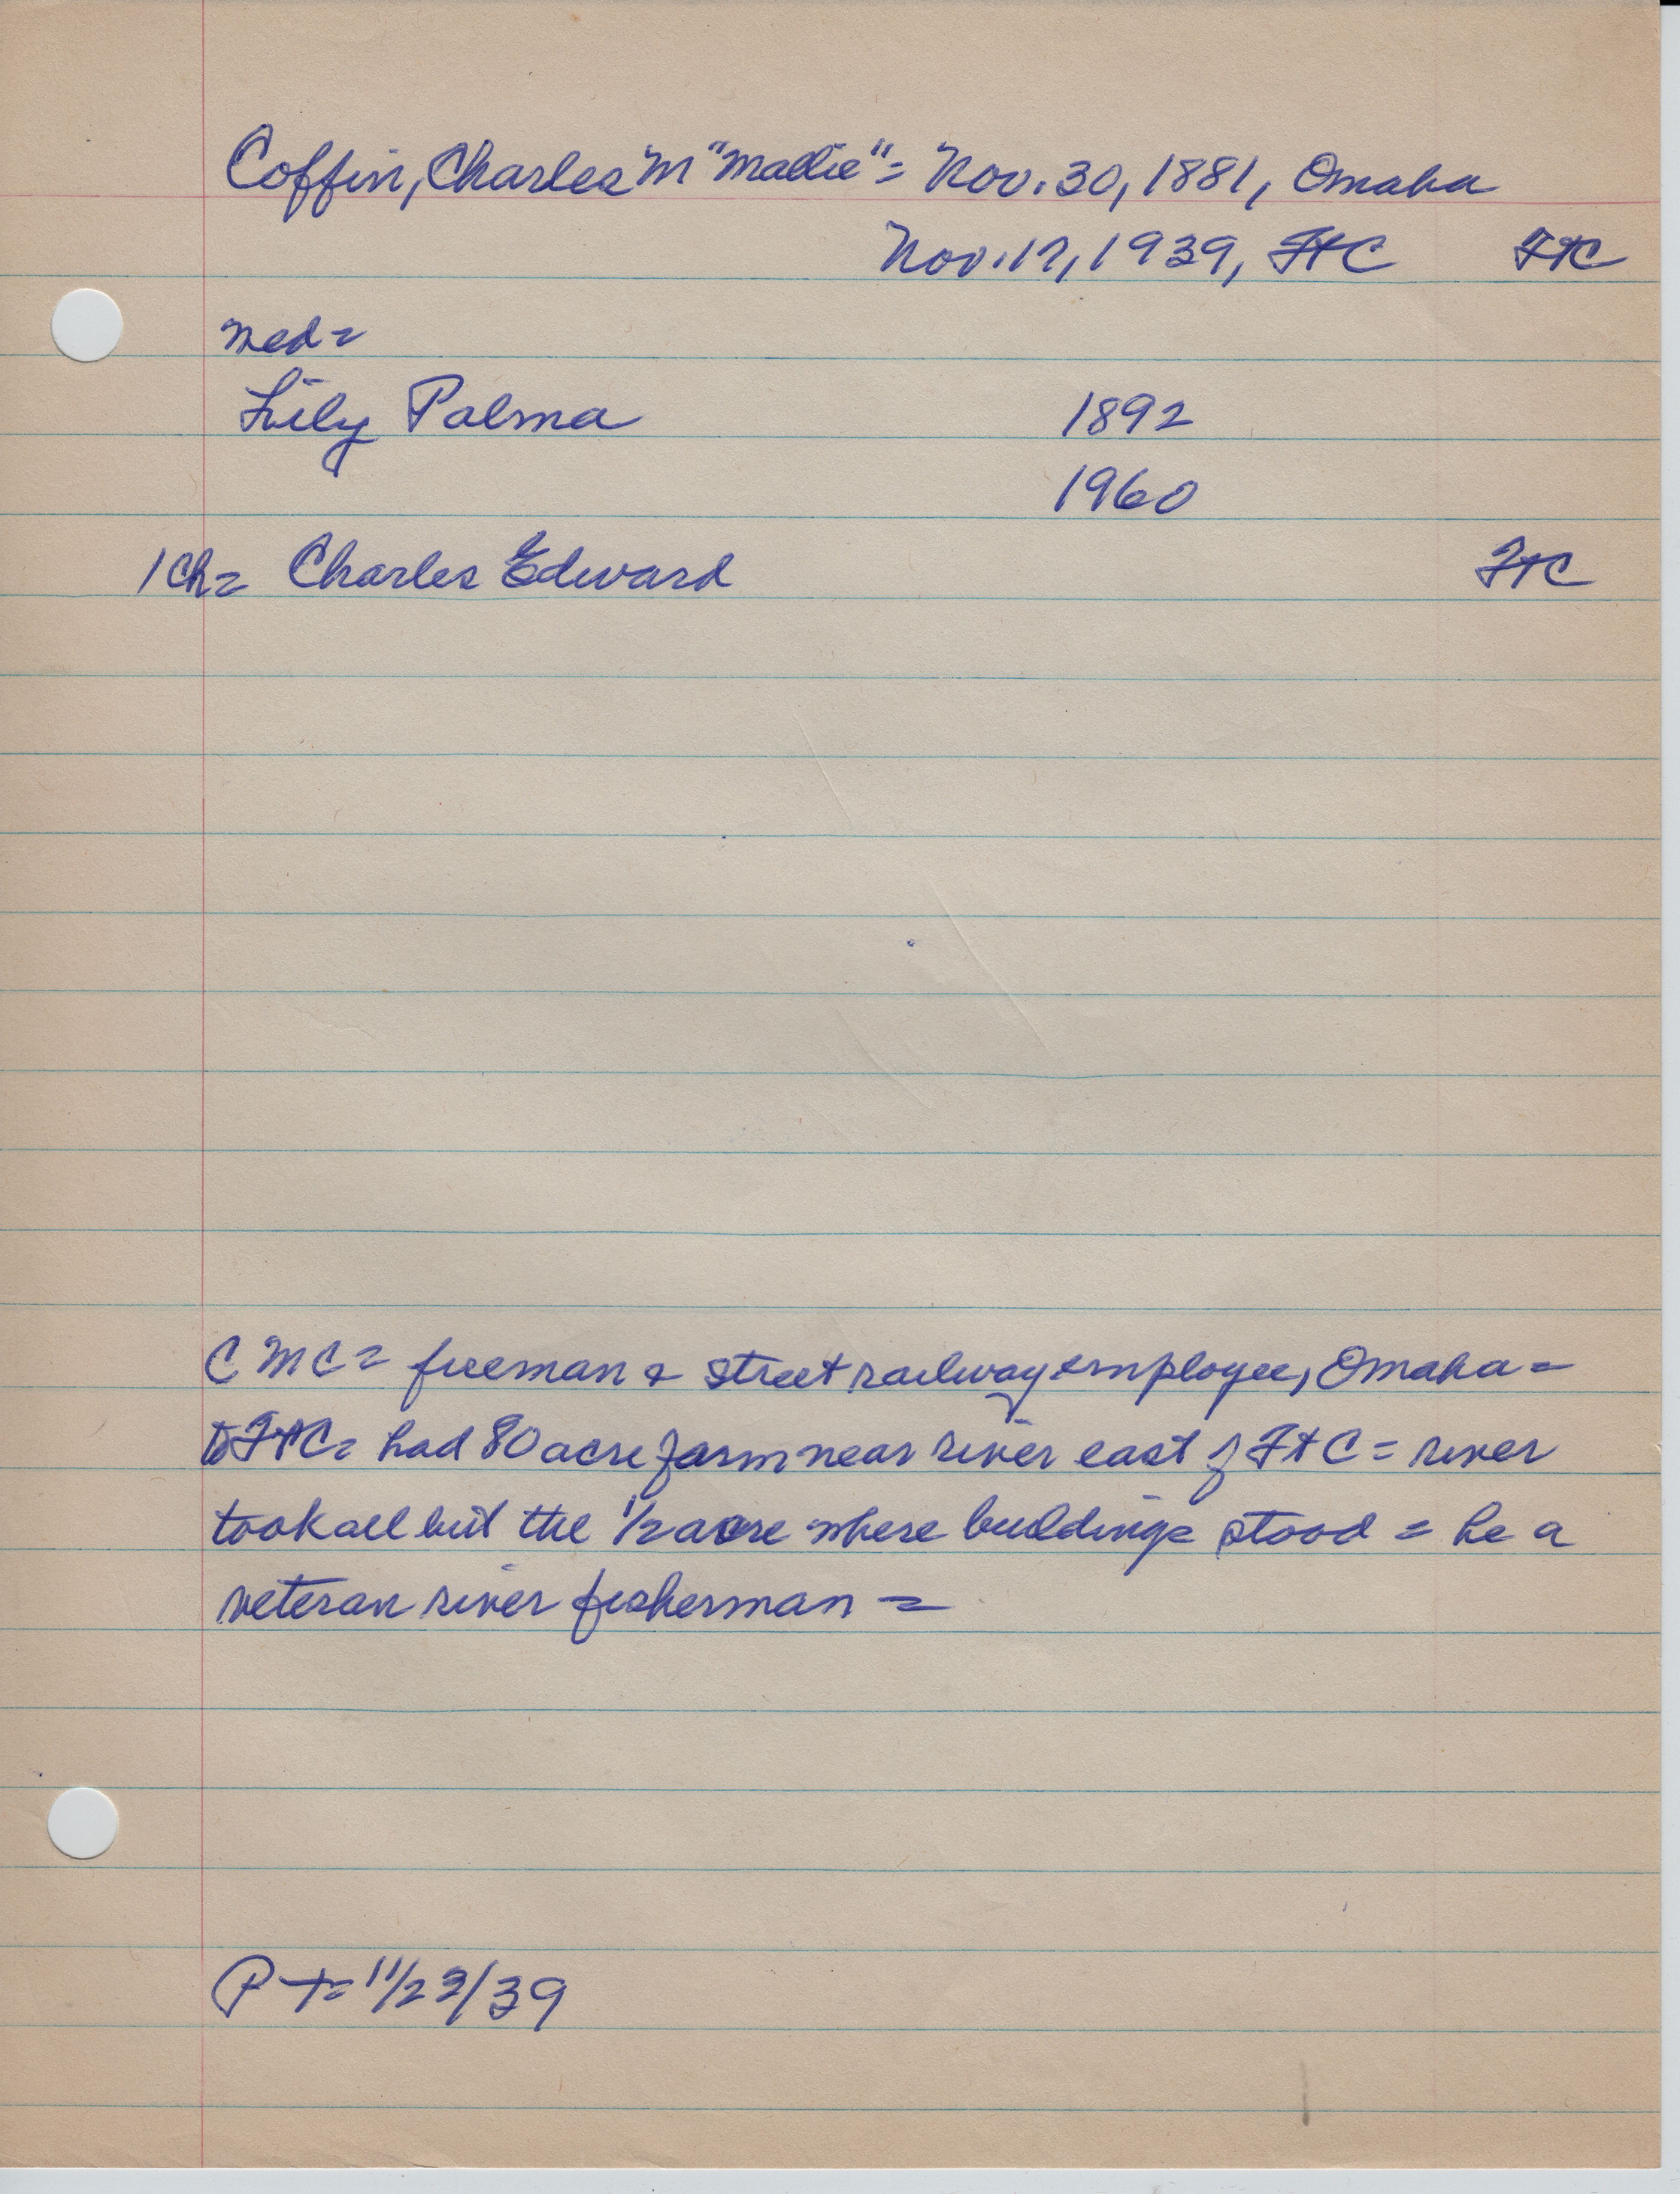 Coffin, Charles "M "Mallie" = Nov. 30, 1881, Omaha
Nov. 17, 1939, FtC FtC
med=
Lily Palma 1892
1960
1 Ch= Charles Edward FtC
C M C = fireman & street railway employee, Omaha =
to FtC = had 80 acre farm near river east of FtC = river
took all but the 1/2 acre where buildings stood = he a
veteran river fisherman =
P-t= 11/23/39